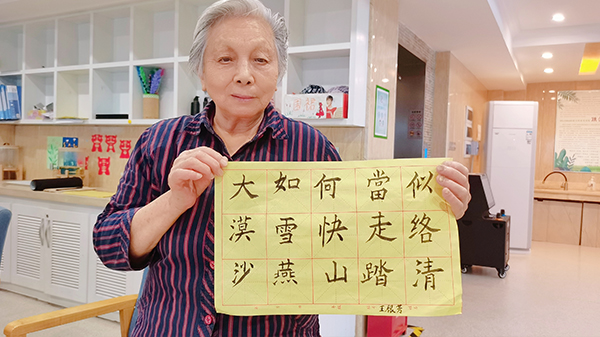 大漠沙
如雪燕
何快山
當走踏
似络清